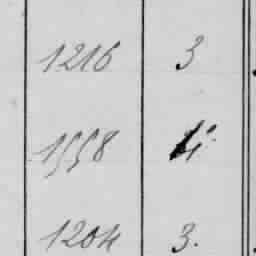 1216 3
1558 4.
1204 3.